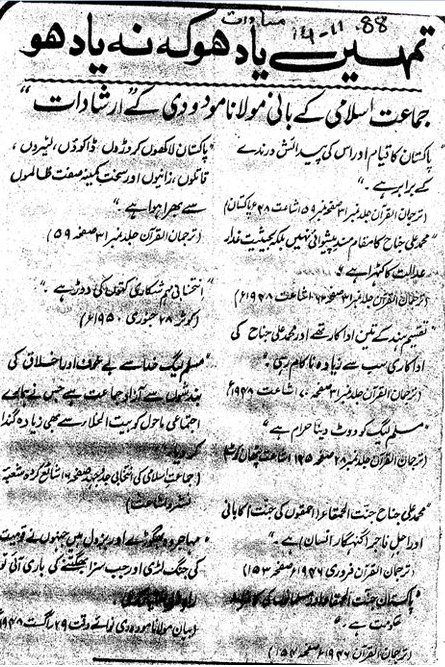 مساوات 14-11-88
تمہیں یاد ہو کہ نہ یاد ہو
جماعت اسلامی کے بانی مولانا مودودی کے "ارشادات"
"پاکستان کا قیام اور اس کی پیدائش درندے
کے برابر ہے۔"
(ترجمان القرآن جلد نمبر ۳۱ صفحہ نمبر ۵۹ اشاعت ۴۸ء پاکستان)
"محمد علی جناح کا مقام مسند پیشوائی نہیں بلکہ بحیثیت غدار
عدالت کا کٹہرا ہے"
(ترجمان القرآن جلد نمبر ۳۱ صفحہ اشاعت ۱۹۴۸ء)
تقسیم ہند کے تین اداکار تھے اور محمد علی جناح کی
اداکاری سب سے زیادہ ناکام رہی۔"
(ترجمان القرآن جلد نمبر ۳۱ صفحہ ۷۰ اشاعت ۱۹۴۸ء)
"مسلم لیگ کو ووٹ دینا حرام ہے"
(ترجمان القرآن جلد نمبر ۲۸ صفحہ ۱۴۵ اشاعت پٹھان کوٹ)
"محمد علی جناح جنت الحمقاء (احمقوں کی جنت) کا بانی
اور اجل فاجر (گنہگار انسان) ہے۔"
(ترجمان القرآن فروری ۱۹۴۶ء صفحہ ۱۵۳)
"پاکستان جنت الحمقاء اور مسلمانوں کی کافرانہ
حکومت ہے۔"
(ترجمان القرآن ۱۹۴۶ء صفحہ ۱۵۴)
"پاکستان لاکھوں کروڑوں، ڈاکوؤں، لٹیروں،
قاتلوں، زانیوں اور سخت کمینہ صفت ظالموں
سے بھرا ہوا ہے۔"
(ترجمان القرآن جلد نمبر ۳۱ صفحہ ۵۹)
"انتخابی مہم شکاری کتوں کی دوڑ ہے۔"
(کوثر ۲۸ جنوری ۱۹۵۰ء)
"مسلم لیگ خدا سے بے خوف اور اخلاق کی
بندشوں سے آزاد جماعت ہے جس نے ہمارے
اجتماعی ماحول کو بیت الخلاء سے بھی زیادہ گندا
کر دیا۔"
(جماعت اسلامی کی انتخابی جدوجہد صفحہ ۶ شائع کردہ شعبہ
نشر و اشاعت)
"مہاجر وہ بھگوڑے اور بزدل ہیں جنہوں نے قومیت
کی جنگ لڑی اور جب سزا بھگتنے کی باری آئی تو
(بیان مولانا مودودی نوائے وقت ۲۹ اگست ۱۹۴۸ء)